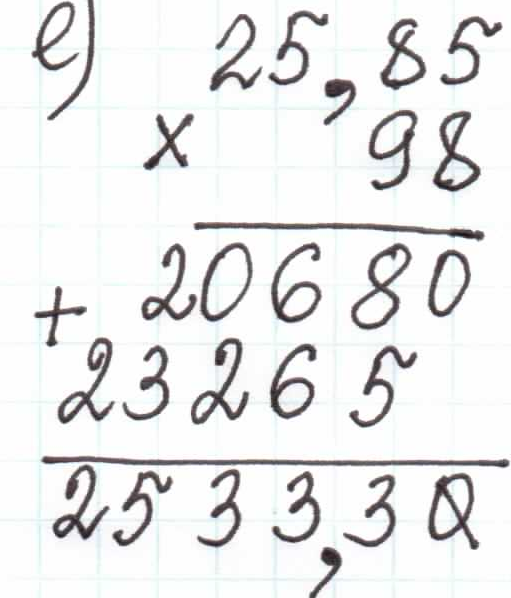 е) 25,85
× 98
+ 20680
23265
2533,30